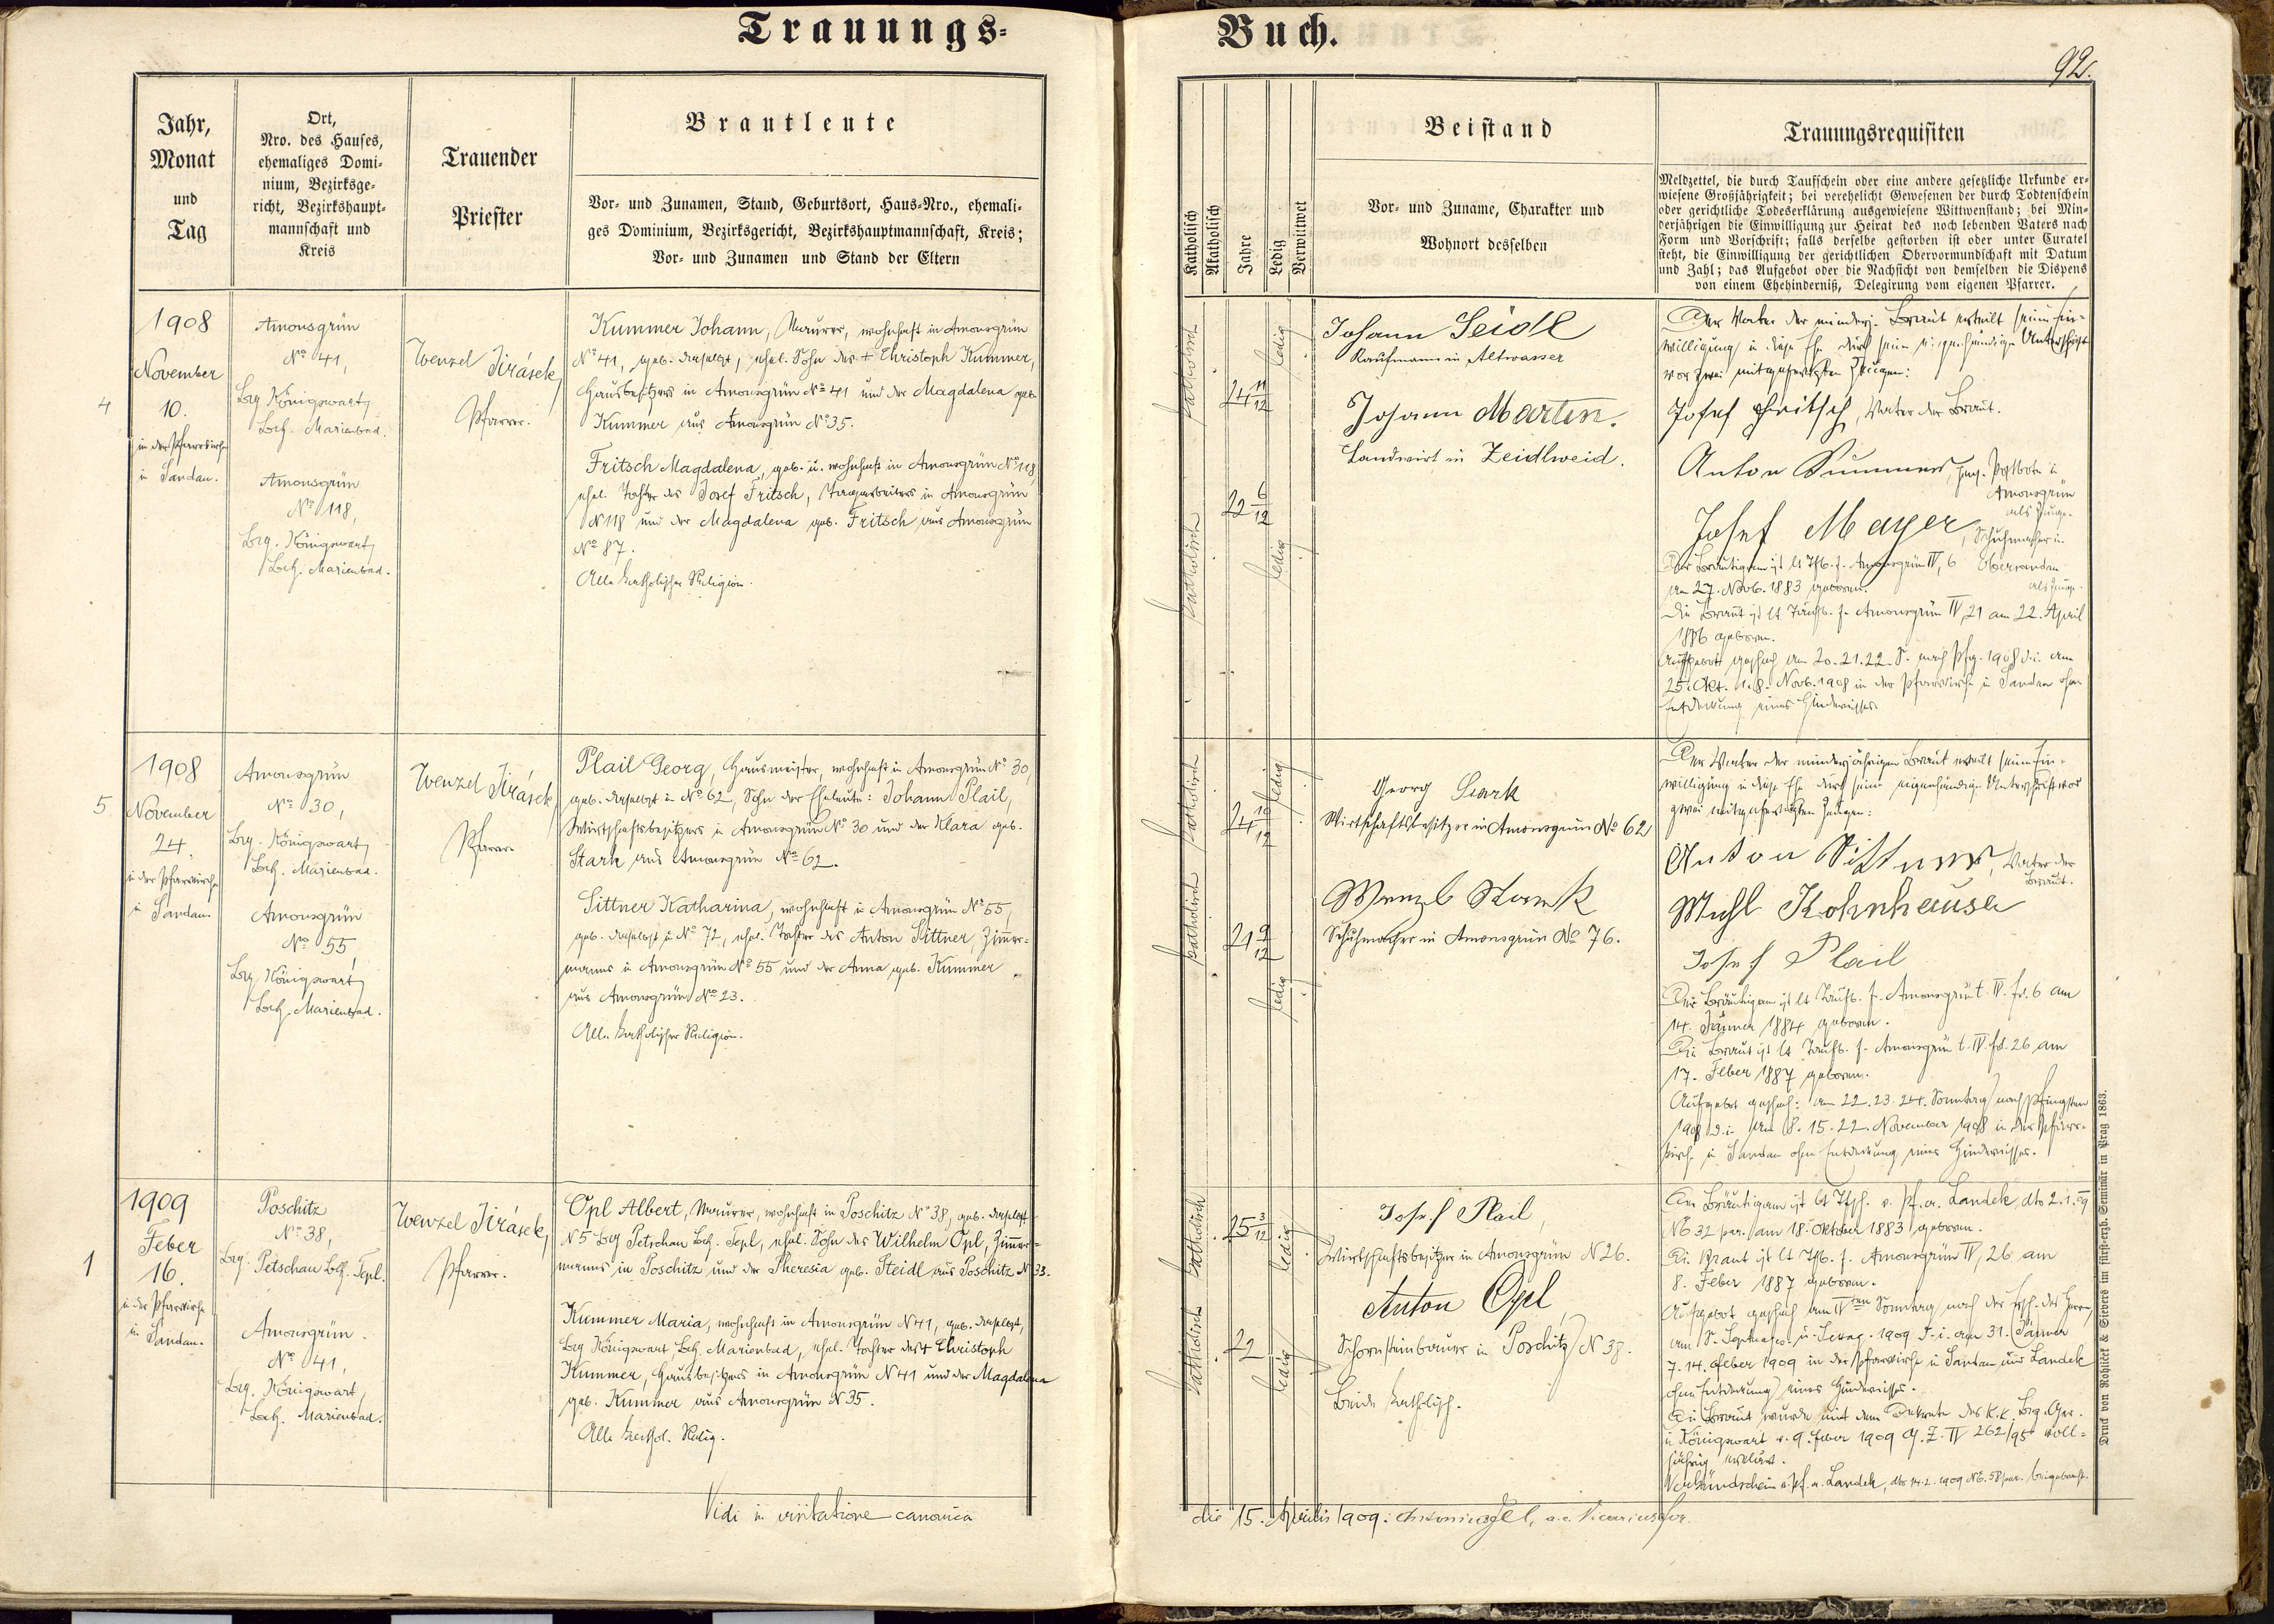 Trauungs-
Buch.
92.
Jahr,
Monat
und
Tag
Ort,
Nro. des Hauses,
ehemaliges Domi-
nium, Bezirksge-
richt, Bezirkshaupt-
mannschaft und
Kreis
Trauender
Priester
Brautleute
Vor- und Zunamen, Stand, Geburtsort, Haus-Nro., ehemali-
ges Dominium, Bezirksgericht, Bezirkshauptmannschaft, Kreis;
Vor- und Zunamen und Stand der Eltern
Katholisch
Akatholisch
Jahre
Ledig
Verwittwet
Beistand
Vor- und Zuname, Charakter und
Wohnort desselben
Trauungsrequisiten
Meldzettel, die durch Taufschein oder eine andere gesetzliche Urkunde er-
wiesene Großjährigkeit; bei verehelicht Gewesenen der durch Todtenschein
oder gerichtliche Todeserklärung ausgewiesene Wittwenstand; bei Min-
derjährigen die Einwilligung zur Heirat des noch lebenden Vaters nach
Form und Vorschrift; falls derselbe gestorben ist oder unter Curatel
steht, die Einwilligung der gerichtlichen Obervormundschaft mit Datum
und Zahl; das Aufgebot oder die Nachsicht von demselben die Dispens
von einem Ehehinderniß, Delegirung vom eigenen Pfarrer.
4
1908
November
10.
in der Pfarrkirche
in Sandau.
Amonsgrün
No 41,
Bzg. Königswart,
Bzh. Marienbad.
Amonsgrün
No 118,
Bzg. Königswart,
Bzh. Marienbad.
Wenzel Jirásek,
Pfarrer.
Kummer Johann, Maurer, wohnhaft in Amonsgrün
No 41, geb. daselbst, ehel. Sohn des + Christoph Kummer,
Hausbesitzers in Amonsgrün No 41 und der Magdalena geb.
Kummer aus Amonsgrün No 35.
Fritsch Magdalena, geb. u. wohnhaft in Amonsgrün No 118,
ehel. Tochter des Josef Fritsch, Tagarbeiters in Amonsgrün
N 118 und der Magdalena geb. Fritsch aus Amonsgrün
No 87.
Alle katholischer Religion.
katholisch
24 11/12
ledig
katholisch
22 6/12
ledig
Johann Seidl
Kaufmann in Altwasser
Johann Martin.
Landwirt in Zeidlweid.
Der Vater der minderj. Braut erteilt seine Ein-
willigung in diese Ehe durch seine eigenhändige Unterschrift
vor zwei mitgefertigten Zeugen:
Josef Fritsch, Vater der Braut.
Anton Kummer, Postbote in
Amonsgrün
als Zeuge.
Josef Mayer, Schuhmacher in
Obersandau
als Zeuge.
Der Bräutigam ist lt Tfb. f. Amonsgrün IV, 6
am 27. Novb. 1883 geboren.
Die Braut ist lt Taufb. f. Amonsgrün IV, 21 am 22. April
1886 geboren.
Aufgebot geschah am 20. 21. 22. S. nach Pfg. 1908 d. i. am
25. Okt. 1. 8. Novb. 1908 in der Pfarrkirche in Sandau ohne
Entdeckung eines Hindernisses.
5
1908
November
24.
in der Pfarrkirche
in Sandau.
Amonsgrün
No 30,
Bzg. Königswart,
Bzh. Marienbad.
Amonsgrün
No 55,
Bzg. Königswart,
Bzh. Marienbad.
Wenzel Jirásek,
Pfarrer
Plail Georg, Hausmeister, wohnhaft in Amonsgrün No 30,
geb. daselbst in No 62, Sohn der Eheleute: Johann Plail,
Wirtschaftsbesitzers in Amonsgrün No 30 und der Klara geb.
Stark aus Amonsgrün No 62.
Sittner Katharina, wohnhaft in Amonsgrün No 55,
geb. daselbst in No 72, ehel. Tochter des Anton Sittner, Zimmer-
manns in Amonsgrün No 55 und der Anna geb. Kummer
aus Amonsgrün No 23.
Alle katholischer Religion.
katholisch
24 10/12
ledig
katholisch
21 9/12
ledig
Georg Stark
Wirtschaftsbesitzer in Amonsgrün No 62
Wenzl Stark
Schuhmacher in Amonsgrün No 76.
Der Vater der minderjährigen Braut erteilt seine Ein-
willigung in diese Ehe durch seine eigenhändige Unterschrift vor
zwei mitgefertigten Zeugen:
Anton Sittner, Vater der
Braut.
Kohnhäuser
Josef Plail
Der Bräutigam ist lt Taufb. f. Amonsgrün t. IV. fol. 6 am
14. Jänner 1884 geboren.
Die Braut ist lt Taufb. f. Amonsgrün t. IV. fol. 26 am
17. Feber 1887 geboren.
Aufgebot geschah: am 22. 23. 24. Sonntag nach Pfingsten
1908 d. i. am 8. 15. 22. November 1908 in der Pfarr-
kirche in Sandau ohne Entdeckung eines Hindernisses.
1
1909
Feber
16.
in der Pfarrkirche
in Sandau.
Poschitz
No 38,
Bzg. Petschau Bzh. Tepl.
Amonsgrün.
No 41,
Bzg. Königswart,
Bzh. Marienbad.
Wenzel Jirásek,
Pfarrer.
Opl Albert, Maurer, wohnhaft in Poschitz No 38, geb. daselbst
N 5 Bzg Petschau Bzh. Tepl, ehel. Sohn des Wilhelm Opl, Zimmer-
manns in Poschitz und der Theresia geb. Steidl aus Poschitz N 33.
Kummer Maria, wohnhaft in Amonsgrün N 41, geb. daselbst,
Bzg Königswart, Bzh. Marienbad, ehel. Tochter des + Christoph
Kummer, Hausbesitzers in Amonsgrün N 41 und der Magdalena
geb. Kummer aus Amonsgrün N 35.
Alle kathol. Relig.
katholisch
25 3/12
ledig
katholisch
22
ledig
Josef Plail,
Wirtschaftsbesitzer in Amonsgrün N 26.
Anton Opl,
Schornsteinbauer in Poschitz N 38.
Beide katholisch.
Der Bräutigam ist lt Tfsch. v. Pf. a. Landek dto 2. 1. 09
No 32 par. am 18. Oktober 1883 geboren.
Die Braut ist lt Tfb. f. Amonsgrün IV, 26 am
8. Feber 1887 geboren.
Aufgebot geschah am IVten Sonntag nach der Ersch. des Herrn,
am S. Septuages. u. Sexag. 1909 d. i. am 31. Jänner
7. 14. Feber 1909 in der Pfarrkirche in Sandau und Landek
ohne Entdeckung eines Hindernisses.
Die Braut wurde mit dem Dekrete des k. k. Bzg. Ger.
in Königswart v. 9. Feber 1909 G. Z. IV 262/95 voll-
jährig erklärt.
Verkündschein v. Pf. a. Landek, dto 14. 2. 1909 No. 58 par. beigebracht.
Vidi in visitatione canonica
die 15. Aprilis 1909:
Druck von Rohliček & Sievers im fürst-erzb. Seminär in Prag 1863.